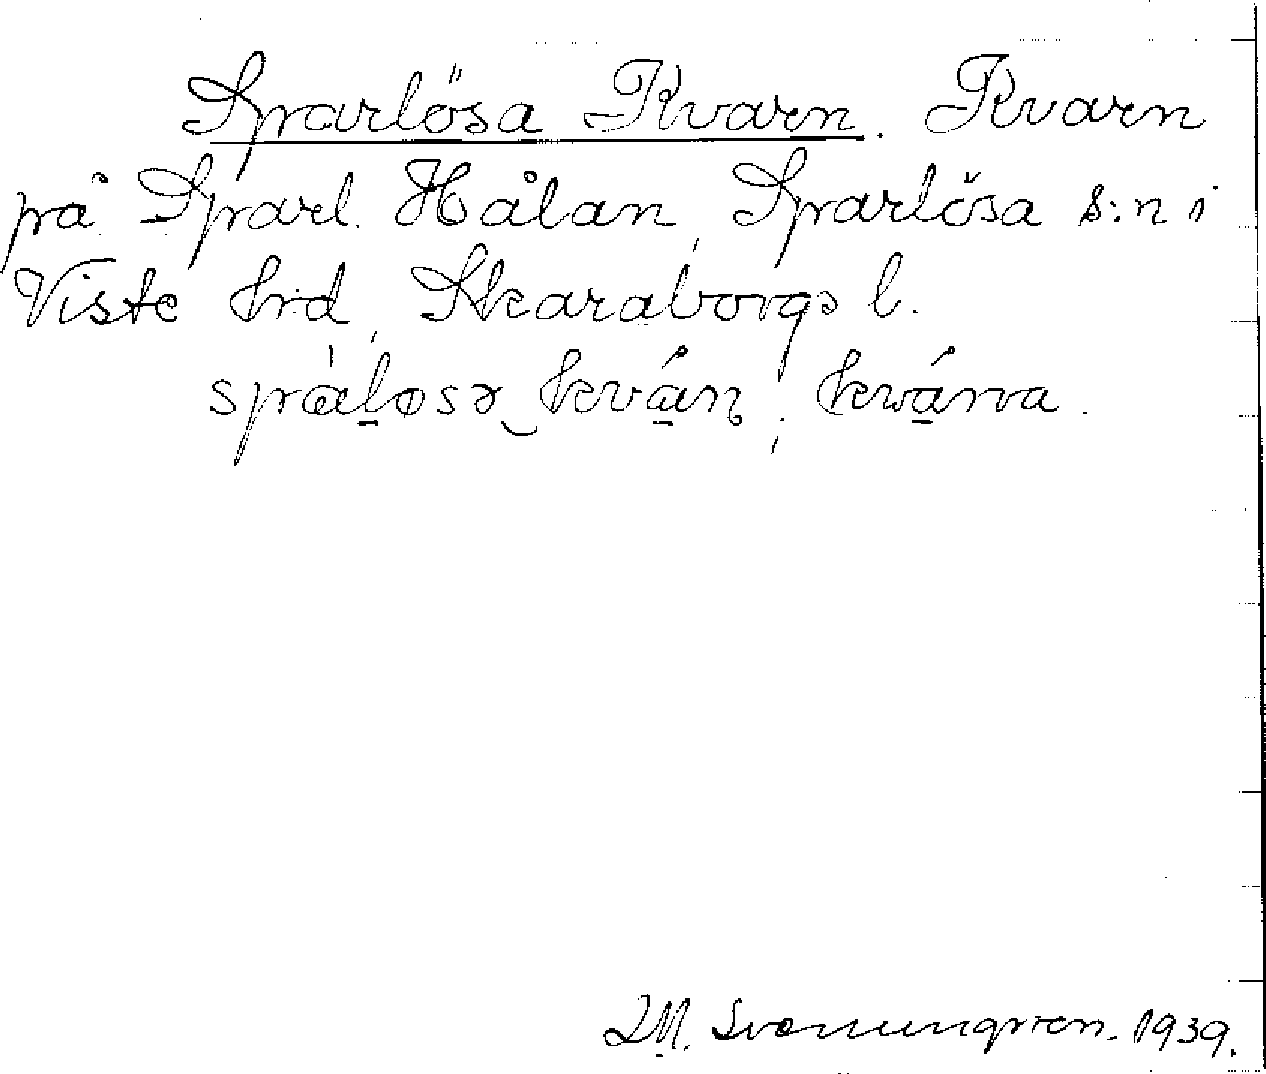 Sparlösa Kvarn. Kvarn
på Sparl. Hålan, Sparlösa s:n i
Viste hd, Skaraborgs l.
språ̱losə‿kvá̱ɳ; kwá̱rna.
Svenungsson. 1939.